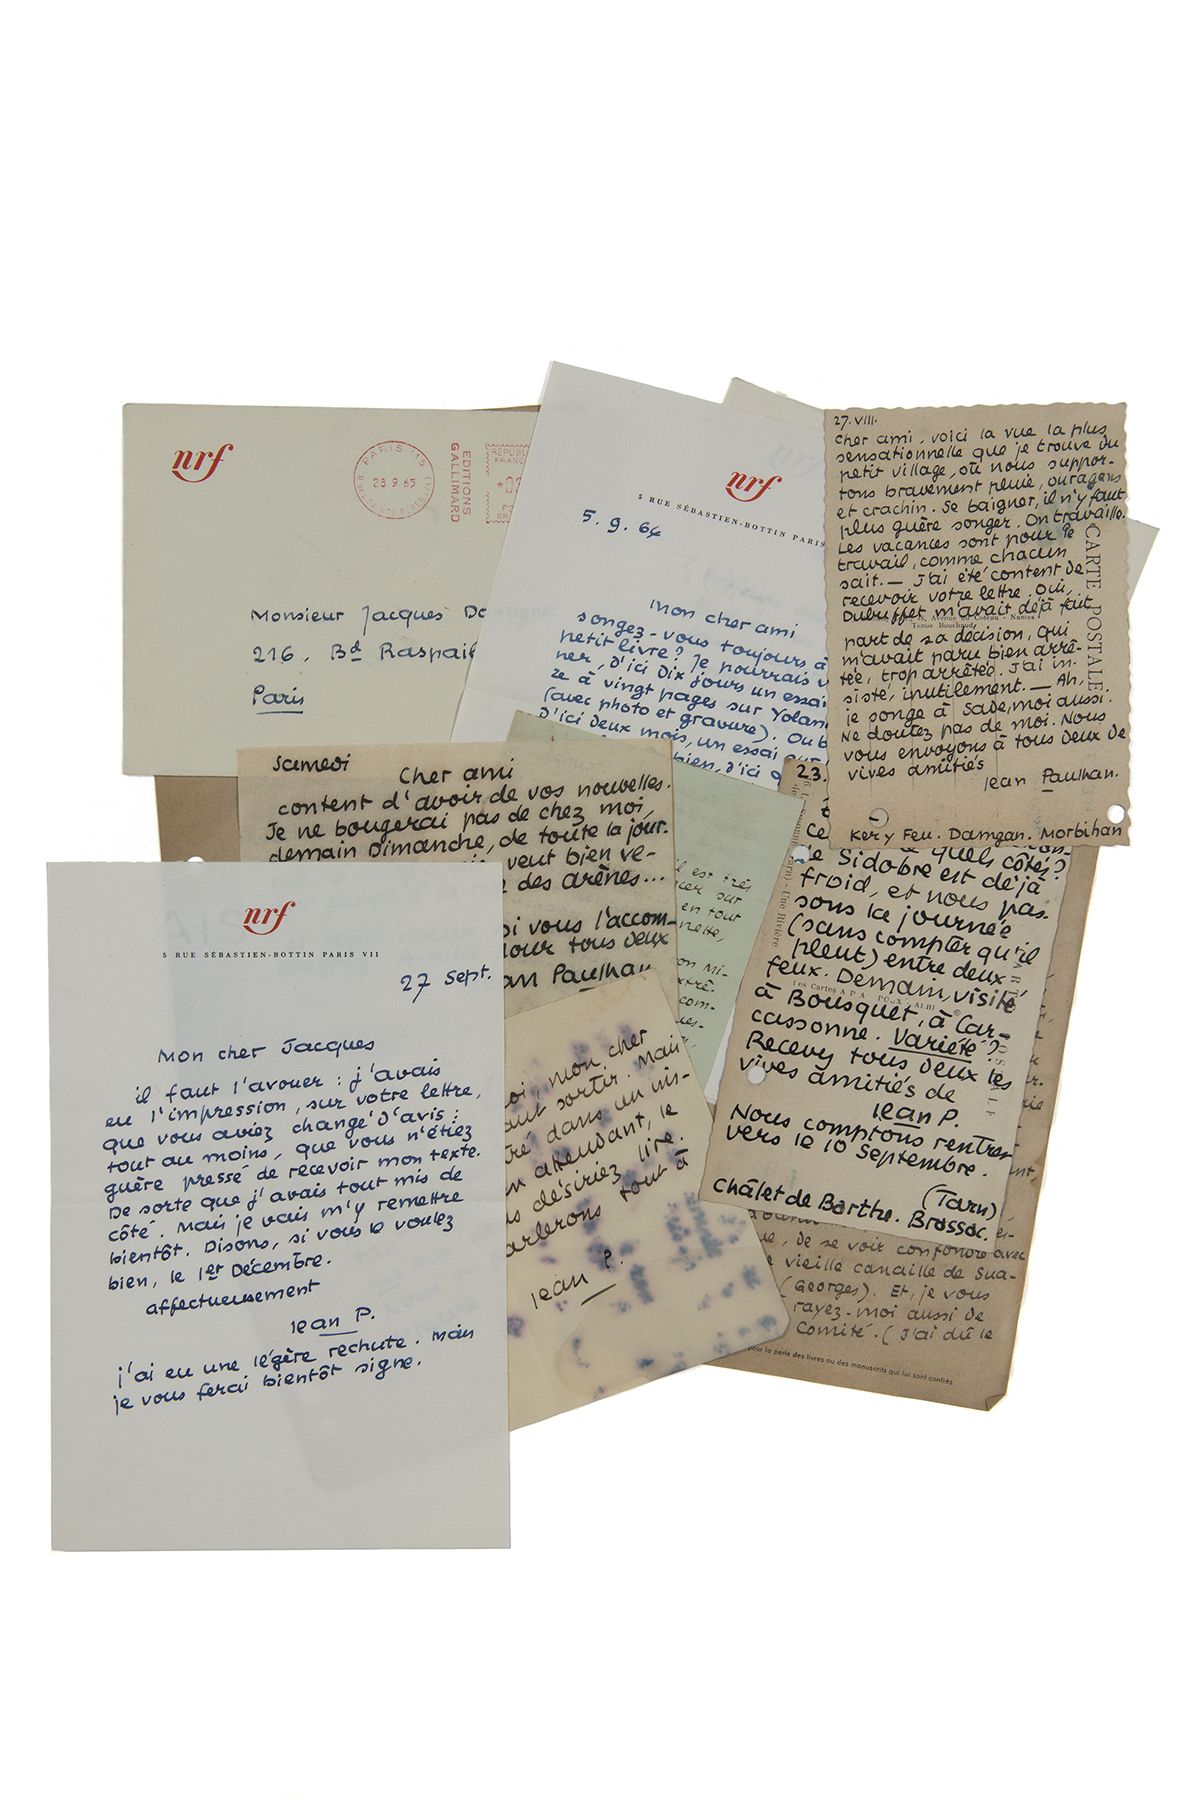 nrf
PARIS-115
23 9 63
EDITIONS
GALLIMARD
Monsieur Jacques
216. Bd Raspail
Paris
nrf
5 RUE SÉBASTIEN-BOTTIN PARIS
5. 9. 64
Mon cher ami
songez-vous toujours à
petit livre? Je pourrais
ner, d'ici dix jours un essai
ze à vingt pages sur
(avec photo et gravure). Ou b
d'ici deux mois, un essai sur
bien, d'ici
27.VIII.
cher ami, voici la vue la plus
sensationnelle que je trouve du
petit village, où nous suppor-
tons bravement pluie, ouragans
et crachin. Se baigner, il n'y faut
plus guère songer. On travaille.
Les vacances sont pour le
travail, comme chacun
sait. — J'ai été content de
recevoir votre lettre. Oui,
Dubuffet m'avait déjà fait
part de sa décision, qui
m'avait paru bien arrê-
tée, trop arrêtée. J'ai in-
sisté, inutilement. — Ah,
je songe à Sade, moi aussi.
Ne doutez pas de moi. Nous
vous envoyons à tous deux de
vives amitiés
Jean Paulhan.
Kéry Feu. Damgan. Morbihan
CARTE POSTALE
Avenue du Coteau - Nantes
Tenue Bouchaud
Samedi
Cher ami
content d'avoir de vos nouvelles.
Je ne bougerai pas de chez moi,
demain Dimanche, de toute la jour.
veut bien ve-
des arènes...
si vous l'accom-
pour tous deux
Jean Paulhan
il est très
sur
en tout
com-
23.
quels côtés?
Le Sidobre est déjà
froid, et nous pas-
sons la journée
(sans compter qu'il
pleut) entre deux
feux. Demain, visite
à Bousquet, à Car-
cassonne. Variété?
Recevez tous deux les
vives amitiés de
Jean P.
Nous comptons rentrer
vers le 10 Septembre.
(Tarn)
châlet de Barthe. Brassac.
Les Cartes APA POUX - ALBI
nrf
5 RUE SÉBASTIEN-BOTTIN PARIS VII
27 Sept.
Mon cher Jacques
il faut l'avouer : j'avais
eu l'impression, sur votre lettre,
que vous aviez changé d'avis :
tout au moins, que vous n'étiez
guère pressé de recevoir mon texte.
De sorte que j'avais tout mis de
côté. Mais je vais m'y remettre
bientôt. Disons, si vous le voulez
bien, le 1er Décembre.
affectueusement
Jean P.
j'ai eu une légère rechute. Mais
je vous ferai bientôt signe.
mon cher
sortir. Mais
dans un mis-
attendant, le
désiriez lire.
parlerons tout à
Jean P.
de se voir confondre avec
vieille canaille de Sua-
(Georges). Et, je vous
rayez-moi aussi de
Comité. (J'ai dû le
pour la perte des livres ou des manuscrits qui lui sont confiés